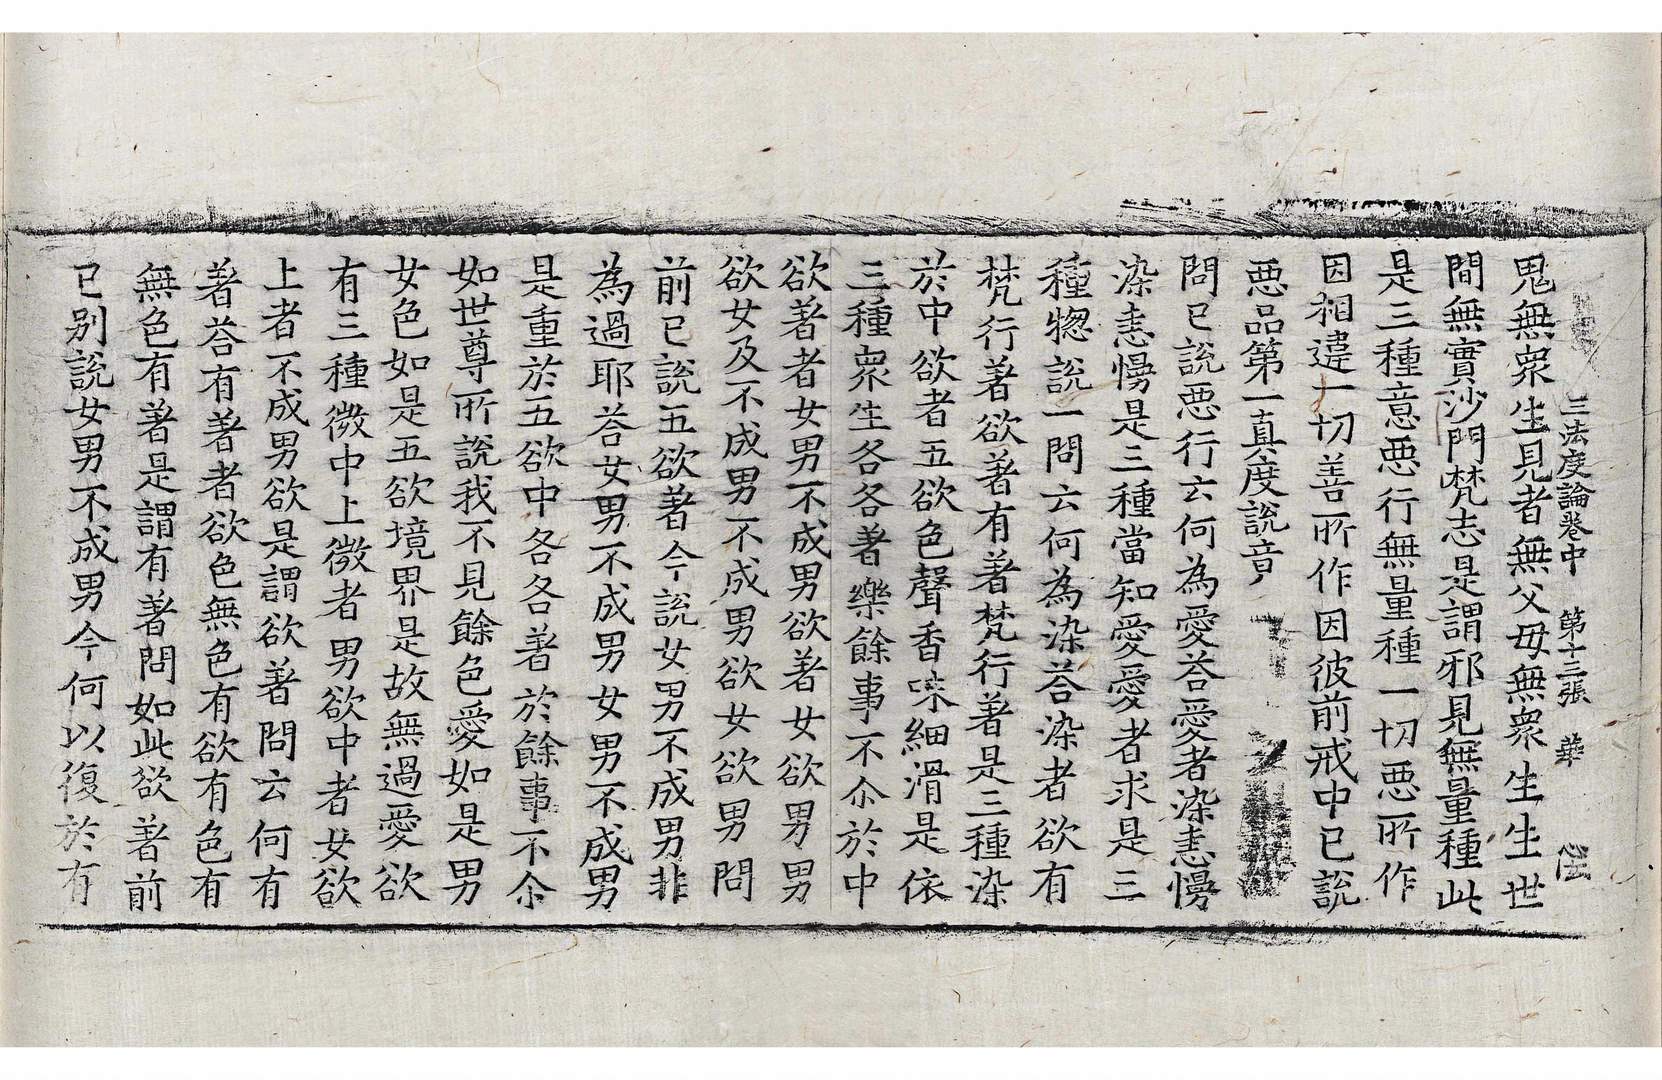 三法度論卷中 第十三張 華
鬼無衆生見者無父母無衆生生世
間無實沙門梵志是謂邪見無量種此
是三種意悪行無量種一切悪所作
因相違一切善所作因彼前戒中已說
悪品第一真度說竟
問已說悪行云何為愛荅愛者染恚慢
染恚慢是三種當知愛愛者求是三
種惣說一問云何為染荅染者欲有
梵行著欲著有著梵行著是三種染
於中欲者五欲色聲香味細滑是依
三種衆生各各著樂餘事不尒於中
欲著者女男不成男欲著女欲男男
欲女及不成男不成男欲女欲男問
前已說五欲著今說女男不成男非
為過耶荅女男不成男女男不成男
是重於五欲中各各著於餘事不尒
如世尊所說我不見餘色愛如是男
女色如是五欲境界是故無過愛欲
有三種微中上微者男欲中者女欲
上者不成男欲是謂欲著問云何有
著荅有著者欲色無色有欲有色有
無色有著是謂有著問如此欲著前
已别說女男不成男今何以復於有